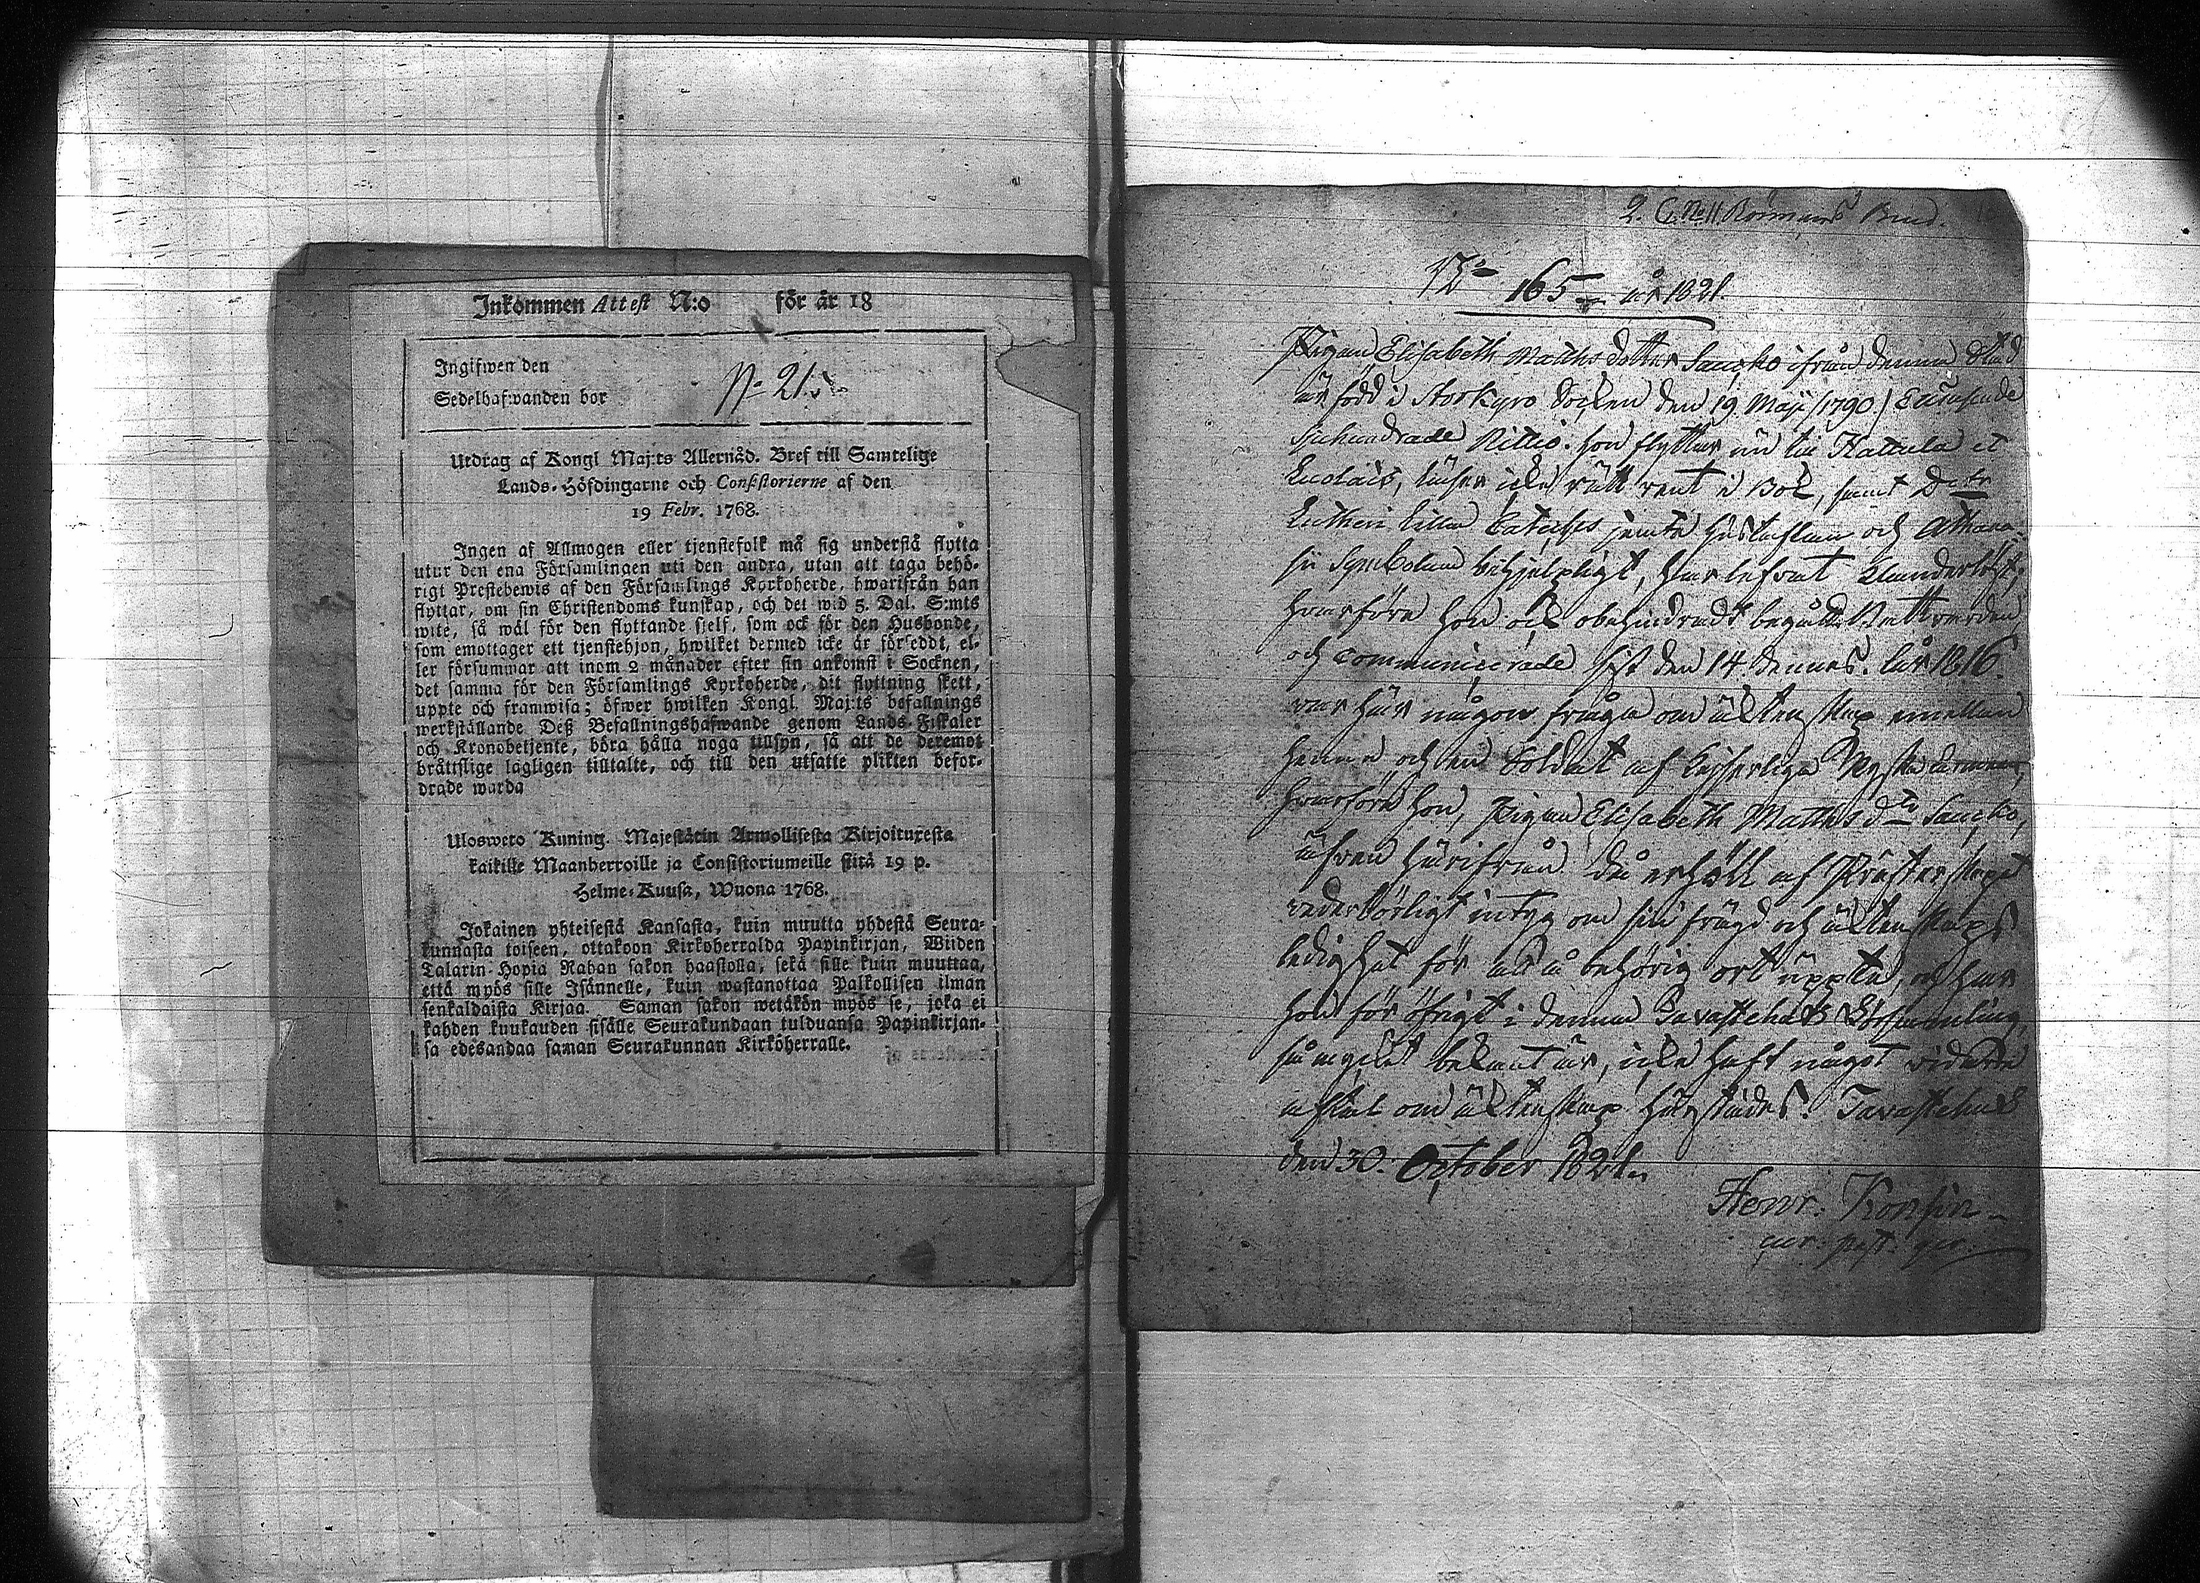 Inkommen Attest N:o för år 18
Ingifwen den
Sedelhafwanden bor
No 215
Utdrag af Kongl Maj:ts Allernåd. Bref till Samtelige
Lands-Höfdingarne och Consistorierne af den
19 Febr. 1768.
Ingen af Allmogen eller tjenstefolk må sig understå flytta
utur den ena Församlingen uti den andra, utan att taga behö-
rigt Prestebewis af den Församlings Kyrkoherde, hwarifrån han
flyttar, om sin Christendoms kunskap, och det wid 5. Dal. S:mts
wite, så wäl för den flyttande sielf, som ock för den Husbonde,
som emottager ett tjenstehjon, hwilket dermed icke är försedt, el-
ler försummar att inom 2 månader efter sin ankomst i Socknen,
det samma för den Församlings Kyrkoherde, dit flyttning skett,
uppte och framwisa; öfwer hwilken Kongl. Maj:ts befallnings
werkställande Deß Befallningshafwande genom Lands-Fiskaler
och Kronobetjente, böra hålla noga tillsyn, så att de deremot
bråttslige lagligen tilltalte, och till den utsatte plikten befor-
drade warda
Uloswето Kuning. Majestätin Armollisesta Kirjoituxesta
kaikille Maanherroille ja Consistoriumeille siitä 19 p.
Helme-Kuusa, Wuona 1768.
Jokainen yhteisestä Kansasta, kuin muutta yhdestä Seura-
kunnasta toiseen, ottakoon Kirkoherralda Papinkirjan, Wiiden
Talarin Hopia Rahan sakon haastolla, sekä sille kuin muuttaa,
että myös sille Isännelle, kuin wastanottaa Palkollisen ilman
senkaldaista Kirjaa. Saman sakon wetäkön myös se, joka ei
kahden kuukauden sisälle Seurakundaan tulduansa Papinkirjan-
sa edesandaa saman Seurakunnan Kirköherralle.
2. C. No 11 Bud.
No 165 år 1821.
Pigan Elisabeth Matthsdotter Saucko ifrån denna Stad
är född i Storkyro Socken den 19 Maji (1790) Ettusende
Sjuhundrade Nittio. hon flyttar nu till Hattula et
läser icke rätt rent i Bok, samt D:r
Lutheri Lilla Cateches jemte Hustaflan och Athana-
sii Symbolum behjelpligt, har lefvat klanderlöst,
hvarföre hon ock obehindradt begått Nattvarden
och communicerade sist den 14 dennes. År 1816
var här någon fråga om äktenskap emellan
henne och en Soldat af Kejserliga Ryska armeen,
hvarföre hon, Pigan Elisabeth Matthsd:tr Saucko,
äfven härifrån då erhöll af Prästerskapet
vederbörligt intyg om sin frägd och äktenskaps
ledighet för att å behörig ort uppte, och har
hon för öfrigt i denna Tavastehus Församling,
så mycket bekant är, icke haft något vidare
aftal om äktenskap härstädes. Tavastehus
den 30. October 1821.
Henr.